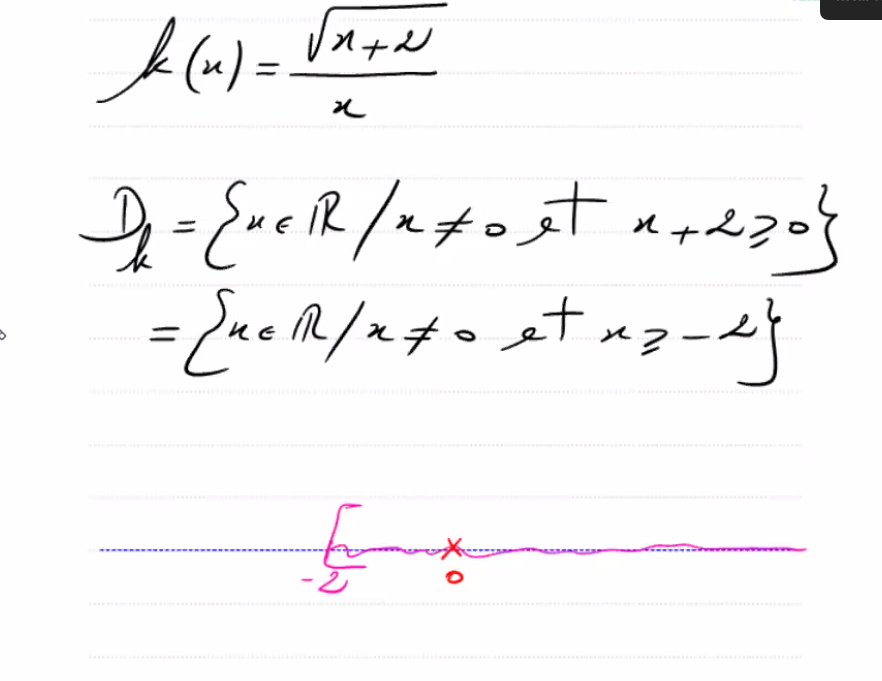 k(x) = √(x+2) / x
D_k = {x ∈ ℝ / x ≠ 0 et x + 2 ⩾ 0}
= {x ∈ ℝ / x ≠ 0 et x ⩾ -2}
[ ×
-2 0